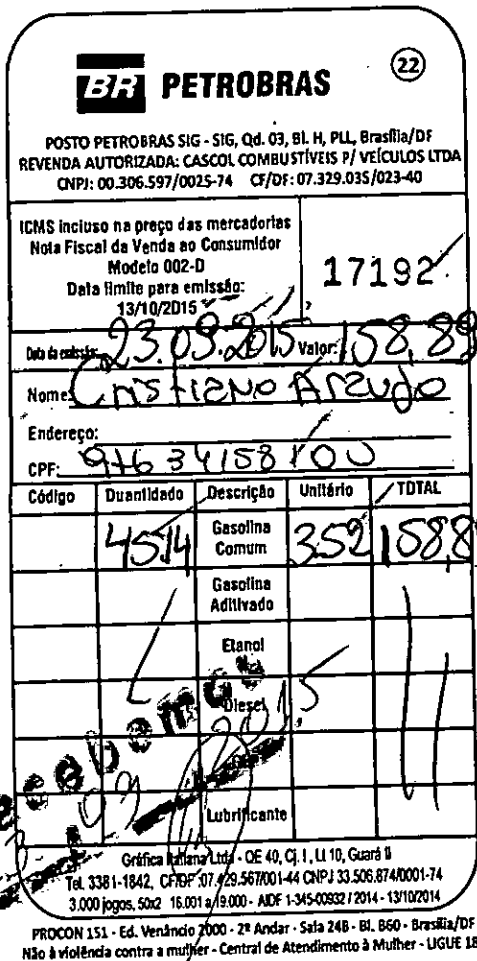 22
BR PETROBRAS
POSTO PETROBRAS SIG - SIG, Qd. 03, Bl. H, PLL, Brasília/DF
REVENDA AUTORIZADA: CASCOL COMBUSTÍVEIS P/ VEÍCULOS LTDA
CNPJ: 00.306.597/0025-74 CF/DF: 07.329.035/023-40
ICMS incluso na preço das mercadorias
Nota Fiscal da Venda ao Consumidor
Modelo 002-D
Data limite para emissão:
13/10/2015
17192
Data da emissão: 23.09.2015 Valor: 158,89
Nome: Cristiano Araujo
Endereço:
CPF: 976 34158100
Código Quantidade Descrição Unitário TOTAL
45,14 Gasolina Comum 3,52 158,8
Gasolina Aditivado
Etanol
Diesel
Recebemos
2015
Lubrificante
Gráfica Italiana Ltda - QE 40, Cj. I, Ll 10, Guará II
Tel. 3381-1842, CF/DF :07.429.567/001-44 CNPJ 33.506.874/0001-74
3.000 jogos, 50x2 16.001 a 19.000 - AIDF 1-345-00932 / 2014 - 13/10/2014
PROCON 151 - Ed. Venâncio 2000 - 2º Andar - Sala 24B - Bl. B60 - Brasília/DF
Não à violência contra a mulher - Central de Atendimento à Mulher - LIGUE 18